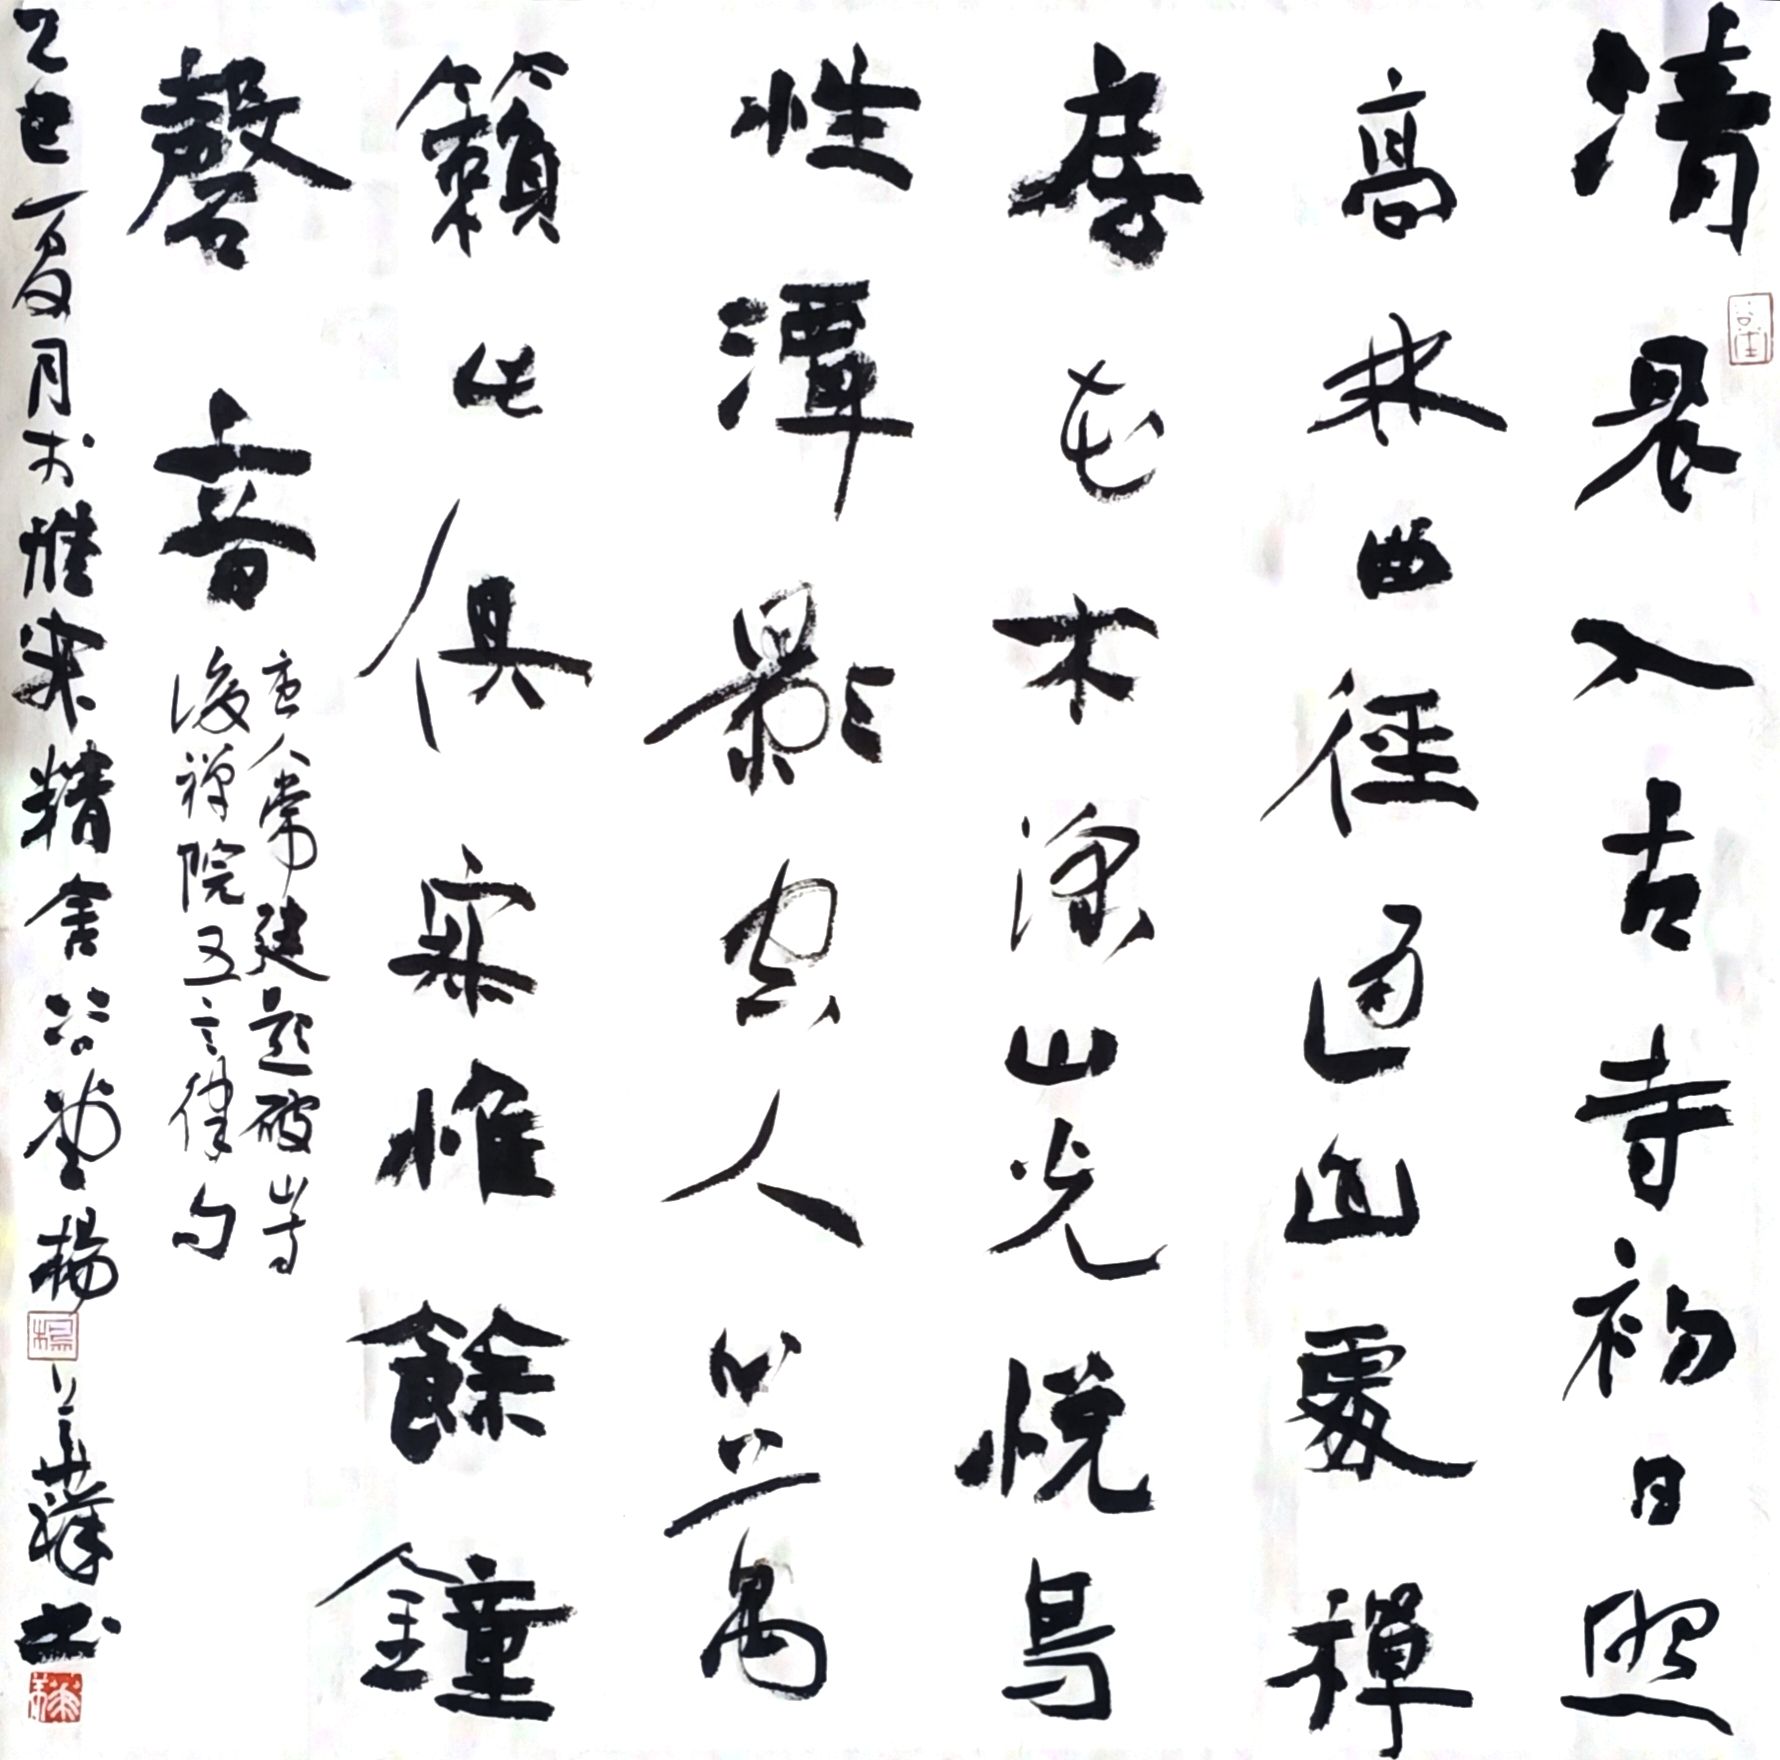 清晨入古寺初日照
高林曲徑通幽處禪
房花木深山光悅鳥
性潭影空人心萬
籟此俱寂惟餘鐘
磬音
唐人常建題破山寺
後禪院五言律句
乙巳夏月於惟寂精舍
楊
書